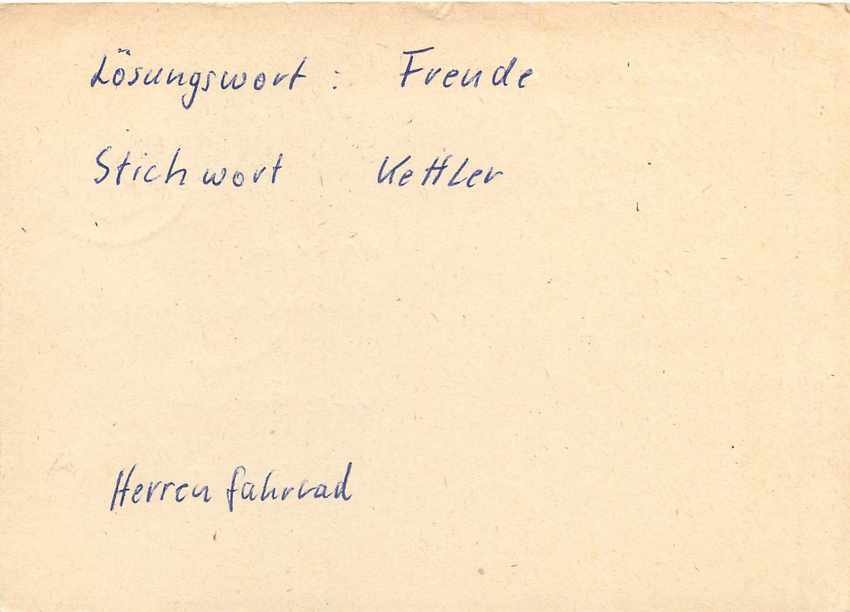 Lösungswort : Freude
Stichwort Kettler
Herrenfahrrad